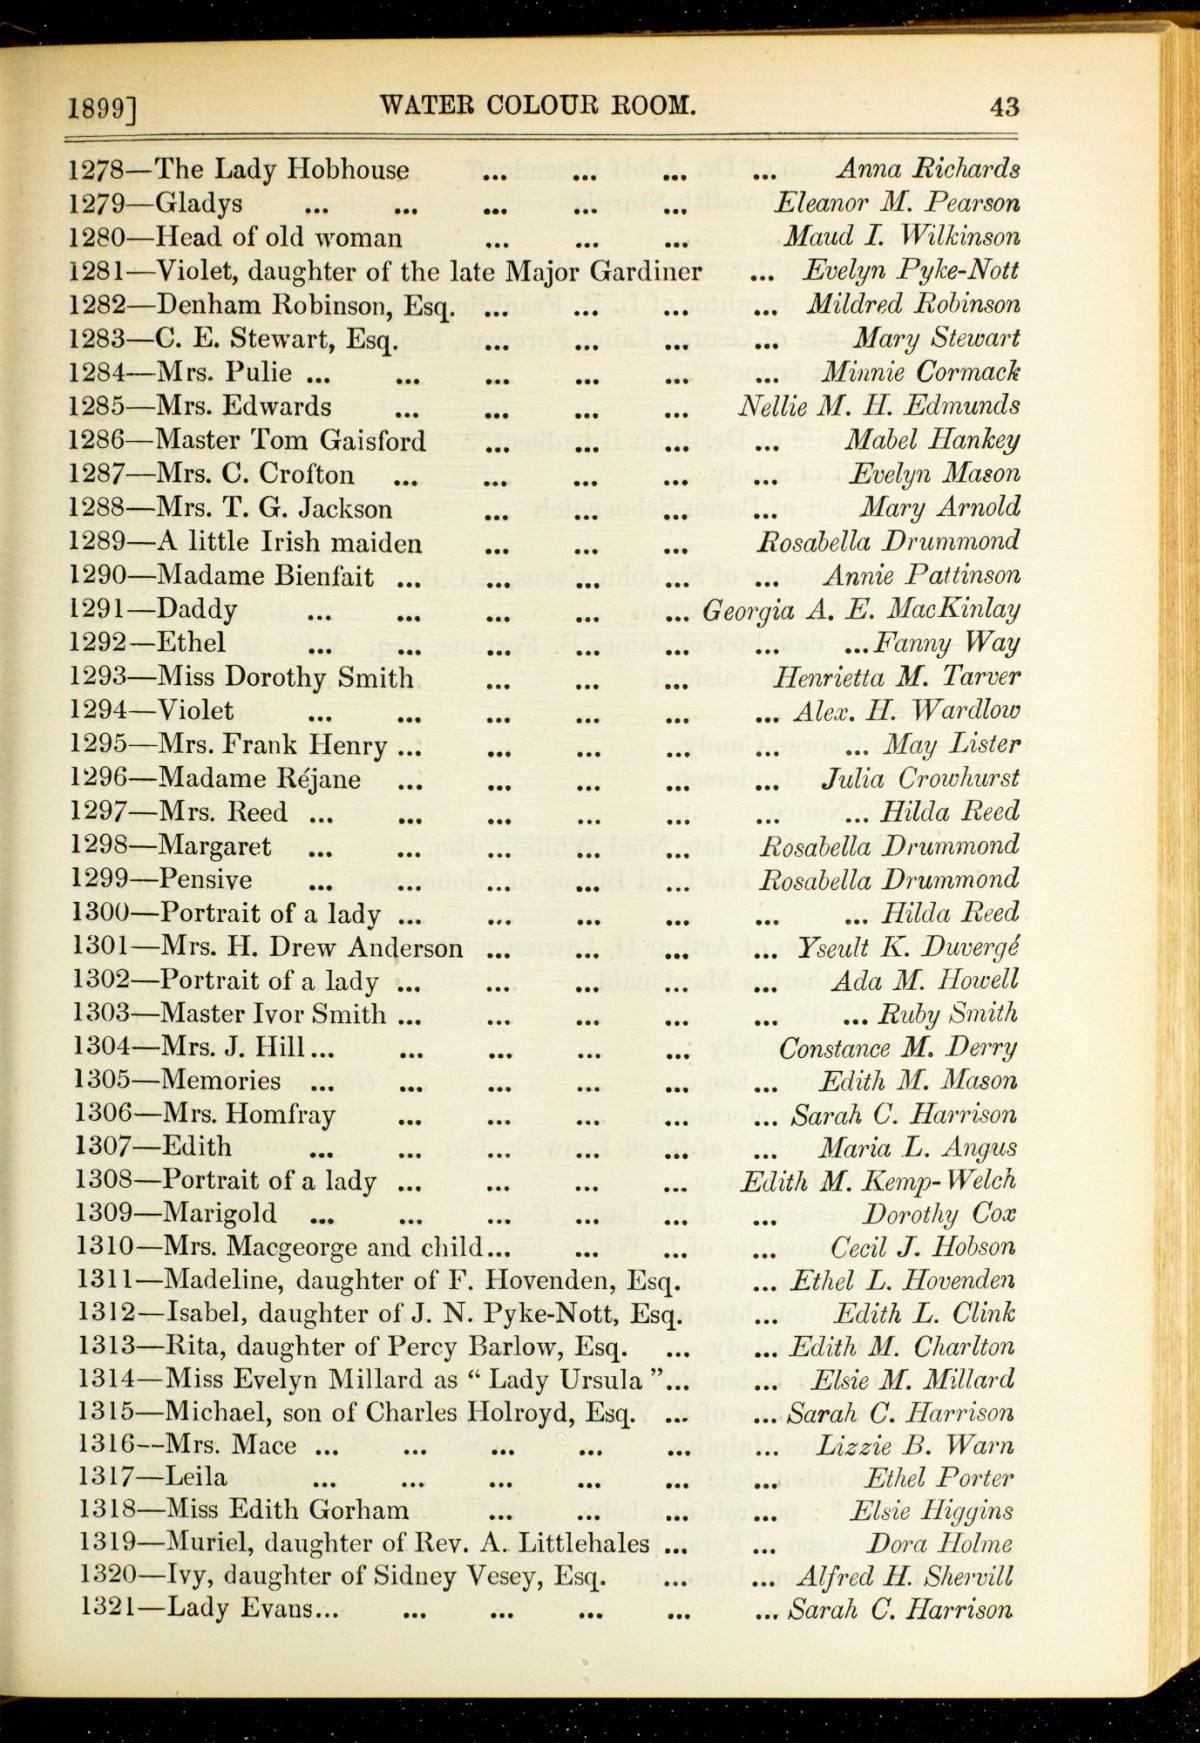 1899] WATER COLOUR ROOM. 43
1278—The Lady Hobhouse ... ... ... ... Anna Richards
1279—Gladys ... ... ... ... ... Eleanor M. Pearson
1280—Head of old woman ... ... ... Maud I. Wilkinson
1281—Violet, daughter of the late Major Gardiner ... Evelyn Pyke-Nott
1282—Denham Robinson, Esq. ... ... ... ... Mildred Robinson
1283—C. E. Stewart, Esq. ... ... ... ... Mary Stewart
1284—Mrs. Pulie ... ... ... ... ... ... Minnie Cormack
1285—Mrs. Edwards ... ... ... ... Nellie M. H. Edmunds
1286—Master Tom Gaisford ... ... ... ... Mabel Hankey
1287—Mrs. C. Crofton ... ... ... ... ... Evelyn Mason
1288—Mrs. T. G. Jackson ... ... ... ... Mary Arnold
1289—A little Irish maiden ... ... ... Rosabella Drummond
1290—Madame Bienfait ... ... ... ... ... Annie Pattinson
1291—Daddy ... ... ... ... ... Georgia A. E. MacKinlay
1292—Ethel ... ... ... ... ... ... ... Fanny Way
1293—Miss Dorothy Smith ... ... ... Henrietta M. Tarver
1294—Violet ... ... ... ... ... ... Alex. H. Wardlow
1295—Mrs. Frank Henry ... ... ... ... ... ... May Lister
1296—Madame Réjane ... ... ... ... ... Julia Crowhurst
1297—Mrs. Reed ... ... ... ... ... ... ... Hilda Reed
1298—Margaret ... ... ... ... ... Rosabella Drummond
1299—Pensive ... ... ... ... ... Rosabella Drummond
1300—Portrait of a lady ... ... ... ... ... ... Hilda Reed
1301—Mrs. H. Drew Anderson ... ... ... ... Yseult K. Duvergé
1302—Portrait of a lady ... ... ... ... ... Ada M. Howell
1303—Master Ivor Smith ... ... ... ... ... ... Ruby Smith
1304—Mrs. J. Hill... ... ... ... ... Constance M. Derry
1305—Memories ... ... ... ... ... ... Edith M. Mason
1306—Mrs. Homfray ... ... ... ... ... Sarah C. Harrison
1307—Edith ... ... ... ... ... ... Maria L. Angus
1308—Portrait of a lady ... ... ... ... Edith M. Kemp-Welch
1309—Marigold ... ... ... ... ... ... Dorothy Cox
1310—Mrs. Macgeorge and child... ... ... ... Cecil J. Hobson
1311—Madeline, daughter of F. Hovenden, Esq. ... Ethel L. Hovenden
1312—Isabel, daughter of J. N. Pyke-Nott, Esq. ... Edith L. Clink
1313—Rita, daughter of Percy Barlow, Esq. ... ... Edith M. Charlton
1314—Miss Evelyn Millard as “ Lady Ursula ”... ... Elsie M. Millard
1315—Michael, son of Charles Holroyd, Esq. ... ... Sarah C. Harrison
1316--Mrs. Mace ... ... ... ... ... ... Lizzie B. Warn
1317—Leila ... ... ... ... ... ... Ethel Porter
1318—Miss Edith Gorham ... ... ... ... Elsie Higgins
1319—Muriel, daughter of Rev. A. Littlehales ... ... Dora Holme
1320—Ivy, daughter of Sidney Vesey, Esq. ... ... Alfred H. Shervill
1321—Lady Evans... ... ... ... ... ... Sarah C. Harrison